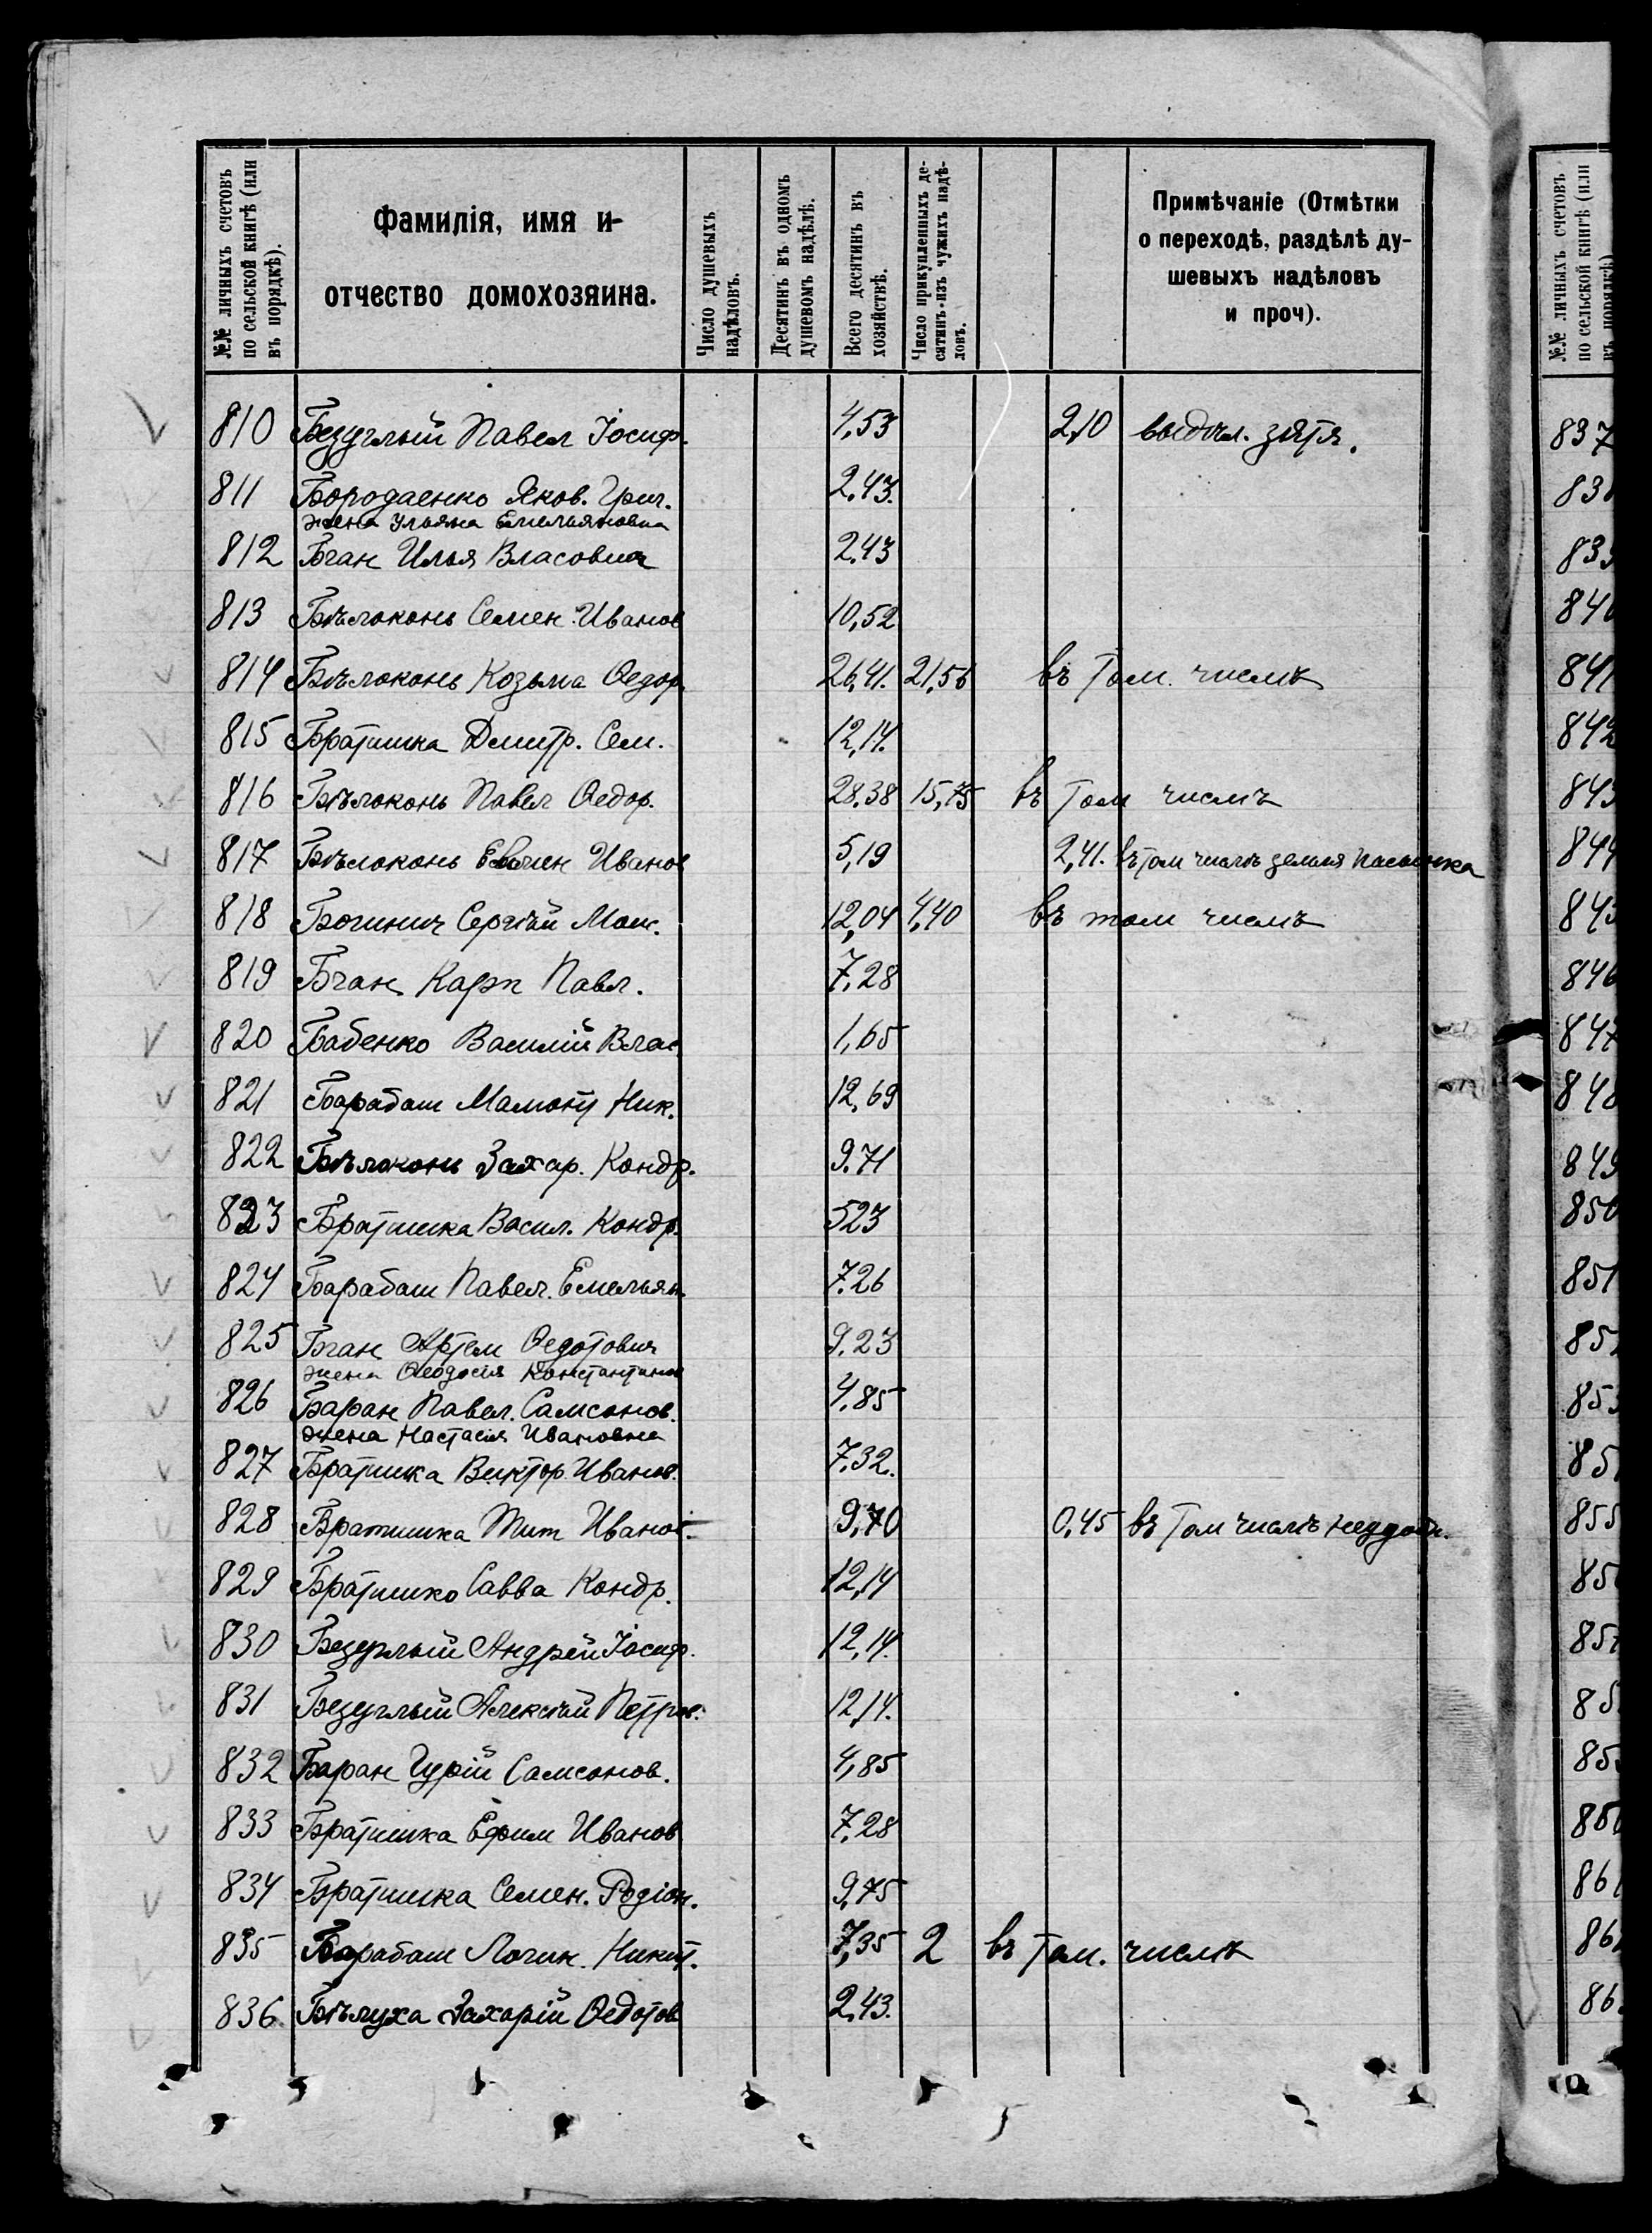 №№ личныхъ счетовъ по сельской книгѣ (или въ порядкѣ).
Фамилія, имя и отчество домохозяина.
Число душевыхъ надѣловъ.
Десятинъ въ одномъ душевомъ надѣлѣ.
Всего десятинъ въ хозяйствѣ.
Число прикупленныхъ десятинъ-изъ чужихъ надѣловъ.
Примѣчаніе (Отмѣтки о переходѣ, раздѣлѣ душевыхъ надѣловъ и проч).
810 Безуглый Павел Іосиф. 4,53 2,10 зятя.
811 Бородаенко Яков. Григ. 2,43.
жена Ульяна Емельяновна
812 Бган Илья Власович 2,43
813 Бѣлоконь Семен Иванов 10,52
814 Бѣлоконь Козьма Ѳедор. 26,41. 21,56 въ том. числѣ
815 Братишка Дмитр. Сем. 12,14.
816 Бѣлоконь Павел Ѳедор. 28,38 15,75 въ том числѣ
817 Бѣлоконь Иванов 5,19 2,41. въ том числѣ земля пасынка
818 Богинич Сергѣй 12,04 4,40 въ том числѣ
819 Бган Карп Павл. 7,28
820 Бабенко Василій Влас 1,65
821 Барабаш Мамонт Ник. 12,69
822 Бѣлоконь Захар. Кондр. 9.71
823 Братишка Васил. Кондр. 523
824 Барабаш Павел. Емельян. 7.26
825 Бган Артем Ѳедотович 9,23
жена Ѳеодосія Константинов
826 Баран Павел. Самсонов. 4,85
жена Настасія Ивановна
827 Братишка Виктор Иванов. 7.32.
828 Братишка Тит Иванов. 9,70 0,45 въ том числѣ неудобн.
829 Братишко Савва Кондр. 12,14
830 Безуглый Андрей Іосиф. 12,14.
831 Безуглый Алексѣй Петров. 12,14.
832 Баран Гурій Самсонов. 4,85
833 Братишка Ефим Иванов 7,28
834 Братишка Семен. Родіон. 9,75
835 Барабаш Логин. Никит. 7,35 2 въ том. числѣ
836 Бѣлуха Захарій Ѳедотов 2,43.
№№ личныхъ счетовъ
по сельской книгѣ (или
въ порядкѣ)
837
841
842
846
847
851